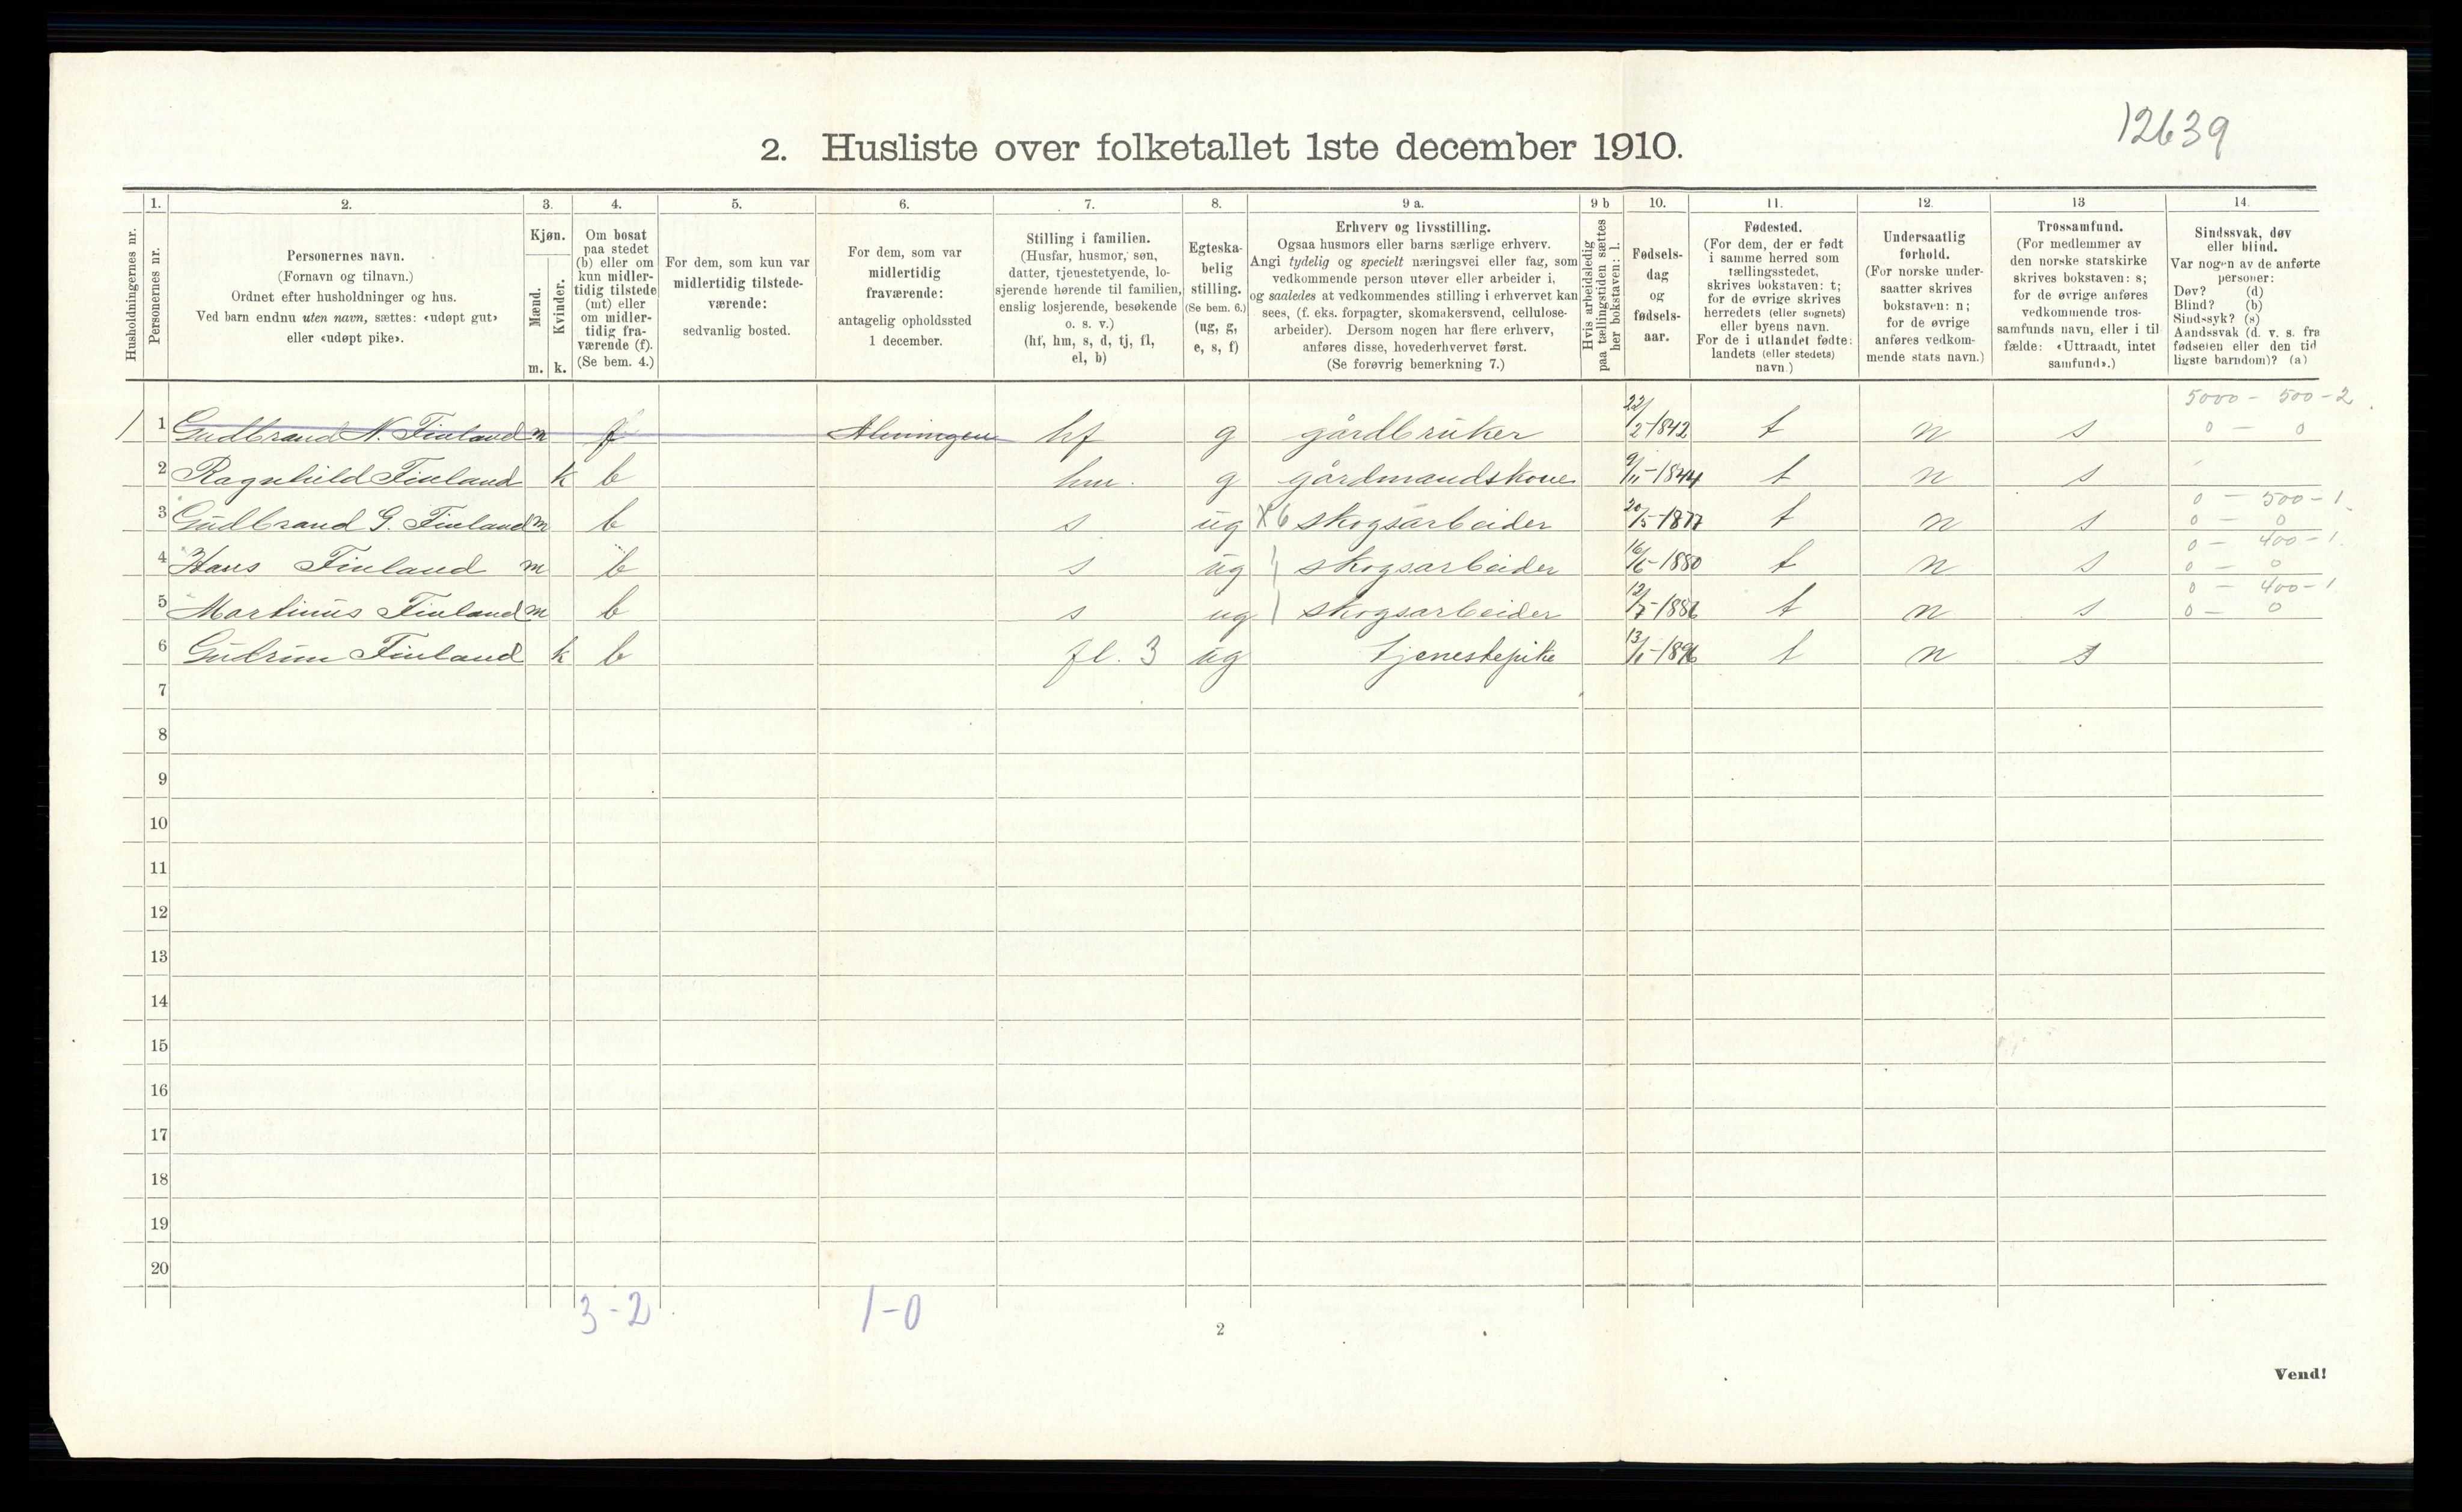 12639
2. Husliste over folketallet 1ste december 1910.
Husholdningernes nr.
1.
Personernes nr.
2.
Personernes navn.
(Fornavn og tilnavn.)
Ordnet efter husholdninger og hus.
Ved barn endnu uten navn, sættes: «udøpt gut»
eller «udøpt pike».
3.
Kjøn.
Mænd.
Kvinder.
m. k.
4.
Om bosat
paa stedet
(b) eller om
kun midler-
tidig tilstede
(mt) eller
om midler-
tidig fra-
værende (f).
(Se bem. 4.)
5.
For dem, som kun var
midlertidig tilstede-
værende:
sedvanlig bosted.
6.
For dem, som var
midlertidig
fraværende:
antagelig opholdssted
1 december.
7.
Stilling i familien.
(Husfar, husmor, søn,
datter, tjenestetyende, lo-
sjerende hørende til familien,
enslig losjerende, besøkende
o. s. v.)
(hf, hm, s, d, tj, fl,
el, b)
8.
Egteska-
belig
stilling.
(Se bem. 6.)
(ug, g,
e, s, f)
9 a.
Erhverv og livsstilling.
Ogsaa husmors eller barns særlige erhverv.
Angi tydelig og specielt næringsvei eller fag, som
vedkommende person utøver eller arbeider i,
og saaledes at vedkommendes stilling i erhvervet kan
sees, (f. eks. forpagter, skomakersvend, cellulose-
arbeider). Dersom nogen har flere erhverv,
anføres disse, hovederhvervet først.
(Se forøvrig bemerkning 7.)
9 b
Hvis arbeidsledig
paa tællingstiden sættes
her bokstaven: l.
10.
Fødsels-
dag
og
fødsels-
aar.
11.
Fødested.
(For dem, der er født
i samme herred som
tællingsstedet,
skrives bokstaven: t;
for de øvrige skrives
herredets (eller sognets)
eller byens navn.
For de i utlandet fødte:
landets (eller stedets)
navn.)
12.
Undersaatlig
forhold.
(For norske under-
saatter skrives
bokstaven: n;
for de øvrige
anføres vedkom-
mende stats navn.)
13
Trossamfund.
(For medlemmer av
den norske statskirke
skrives bokstaven: s;
for de øvrige anføres
vedkommende tros-
samfunds navn, eller i til
fælde: «Uttraadt, intet
samfund».)
14.
Sindssvak, døv
eller blind.
Var nogen av de anførte
personer:
Døv? (d)
Blind? (b)
Sindssyk? (s)
Aandssvak (d. v. s. fra
fødselen eller den tid
ligste barndom)? (a)
5000 - 500 - 2
1 Gudbrand N. Finland m f Almingen hf g gårdbruker 22/2-1842 t n s 0 - 0
2 Ragnhild Finland k b hm. g gårdmandskone 9/11-1844 t n s
0 - 500 - 1
3 Gudbrand G. Finland m b s ug X6 skogsarbeider 20/5-1877 t n s 0 - 0
0 - 400 - 1
4 Hans Finland m b s ug skogsarbeider 16/6-1880 t n s 0 - 0
0 - 400 - 1
5 Martinus Finland m b s ug skogsarbeider 12/7-1886 t n s 0 - 0
6 Gudrun Finland k b fl. 3 ug tjenestepike 13/1-1896 t n s
7
8
9
10
11
12
13
14
15
16
17
18
19
20
3-2 1-0
2
Vend!